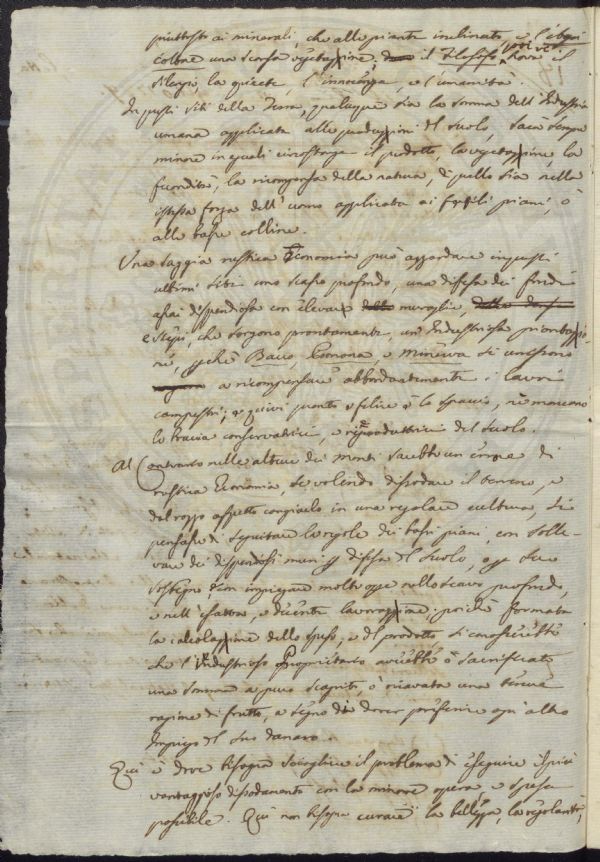 piuttosto ai minerali, che alle piante inclinate e l'ibrei
coltore una scarsa vegetazione; il Filosofo poi vi trova il
silenzio, la quiete, l'innocenza, e l'umanità.
In questi siti della Terra, qualunque sia la somma dell'Industria
umana applicata alle produzzioni del suolo, sarà sempre
minore in eguali circostanze il prodotto, la vegetazione, la
fecondità, la ricompensa della natura, di quello sia nella
istessa forza dell'uomo applicata ai fertili piani, o
alle basse colline.
Una saggia rustica Economia può approdare in questi
ultimi siti uno scasso profondo, una difesa dei fondi
assai dispendiosa con elevare muraglie,
e siepi, che sorgono prontamente, un'industriosa piantazio=
ne, perchè Bacco, Pomona, e Minerva si uniscono
a ricompensare abbondantemente i lavori
campestri; e quivi pronto e felice è lo spaccio, nè mancano
le braccia conservatrici, e riproduttrici del suolo.
Al Contrario nelle alture dei monti sarebbe un errore di
rustica Economia, se volendo dissodare il terreno, e
dal rozzo aspetto cangiarlo in una regolare cultura, si
pensasse di seguitare le regole dei bassi piani, con solle=
vare dei dispendiosi muri per difesa del suolo, o per suo
sostegno d'un impiegare molte opere nello scavo profondo,
e nell'esatta, e diligente lavorazione; poichè formata
la calcolazione delle spese, e del prodotto si conoscerebbe
che l'industrioso Proprietario avrebbe o sacrificato
una somma a puro scapito, o ricavata una tenue
ragione di frutto, a segno di dover preferire ogn'altro
Impiego del suo danaro.
Qui è dove bisogna sciogliere il problema di eseguire il più
vantaggioso dissodamento con la minore opera, e spesa
possibile. Qui non bisogna curare la bellezza, la regolarità,